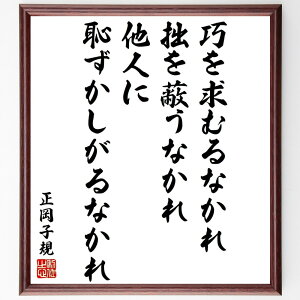 巧を求むるなかれ
拙を蔽うなかれ
他人に
恥ずかしがるなかれ
正岡子規